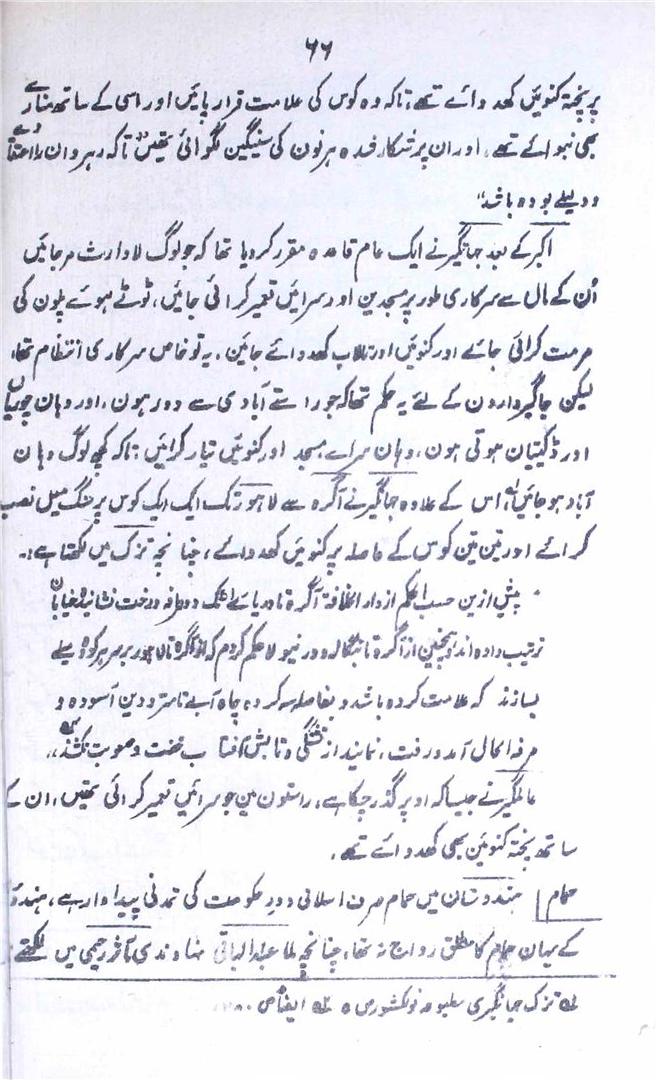 ۶۶
پر پختہ کنوئیں کھدوائے تھے، تاکہ وہ کوس کی علامت قرار پائیں اور اسی کے ساتھ منارے
بھی بنوائے تھے، اور ان پر شکار شدہ ہرنون کی سینگین لگوائی تھیں تاکہ رہروان را
و دلیلے بودہ باشد"
اکبر کے بعد جہانگیر نے ایک عام قاعدہ مقرر کردیا تھا کہ جو لوگ لاوارث مرجائیں
اُن کے مال سے سرکاری طور پر مسجدین اور سرائیں تعمیر کرائی جائیں، ٹوٹے ہوئے پلون کی
مرمت کرائی جائے اور کنوئیں اور تالاب کھدوائے جائین، یہ تو خاص سرکاری انتظام تھا،
لیکن جاگیردارون کے لئے یہ حکم تھا کہ جو راستے آبادی سے دور ہون، اور وہان چوریاں
اور ڈکیتیان ہوتی ہون، وہان سراے مسجد اور کنوئیں تیار کرائیں تاکہ کچھ لوگ وہان
آباد ہوجائیں، اس کے علاوہ جہانگیر نے آگرہ سے لاہور تک ایک ایک کوس پر سنگ میل نصب
کرائے اور تین تین کوس کے فاصلہ پر کنوئیں کھدوائے، چنانچہ تزک میں لکھتا ہے:۔
پیش ازین حسب الحکم از دار الخلافۃ آگرہ تا دریاے اٹک دو طرفہ درخت نشانیدہ خیابان
ترتیب دادہ اند و ہمچنین از آگرہ تا بنگالہ درنیولا حکم کردم کہ از آگرہ تا لاہور بر سر ہر کوہ میلے
بسازند کہ علامت کردہ باشد و بفاصلہ سہ کروہ چاہ آبے تا مترددین آسودہ و
مرفہ الحال آمد و رفت نمایند از تشنگی و تابش آفتاب محنت و صعوبت نکشند"
عالمگیر نے جیسا کہ اوپر گذر چکا ہے، راستون مین جو سرائیں تعمیر کرائی تھیں، ان کے
ساتھ پختہ کنوئین بھی کھدوائے تھے،
حمام | ہندوستان میں حمام صرف اسلامی دور حکومت کی تمدنی پیداوار ہے، ہندوؤں
کے یہان حمام کا مطلق رواج نہ تھا، چنانچہ ملا عبد الباقی نہاوندی مآثر رحیمی میں لکھتے:
لے تزک جہانگیری مطبوعہ نولکشوری ص ۵ لے ایضاً ص ۲۸۰،